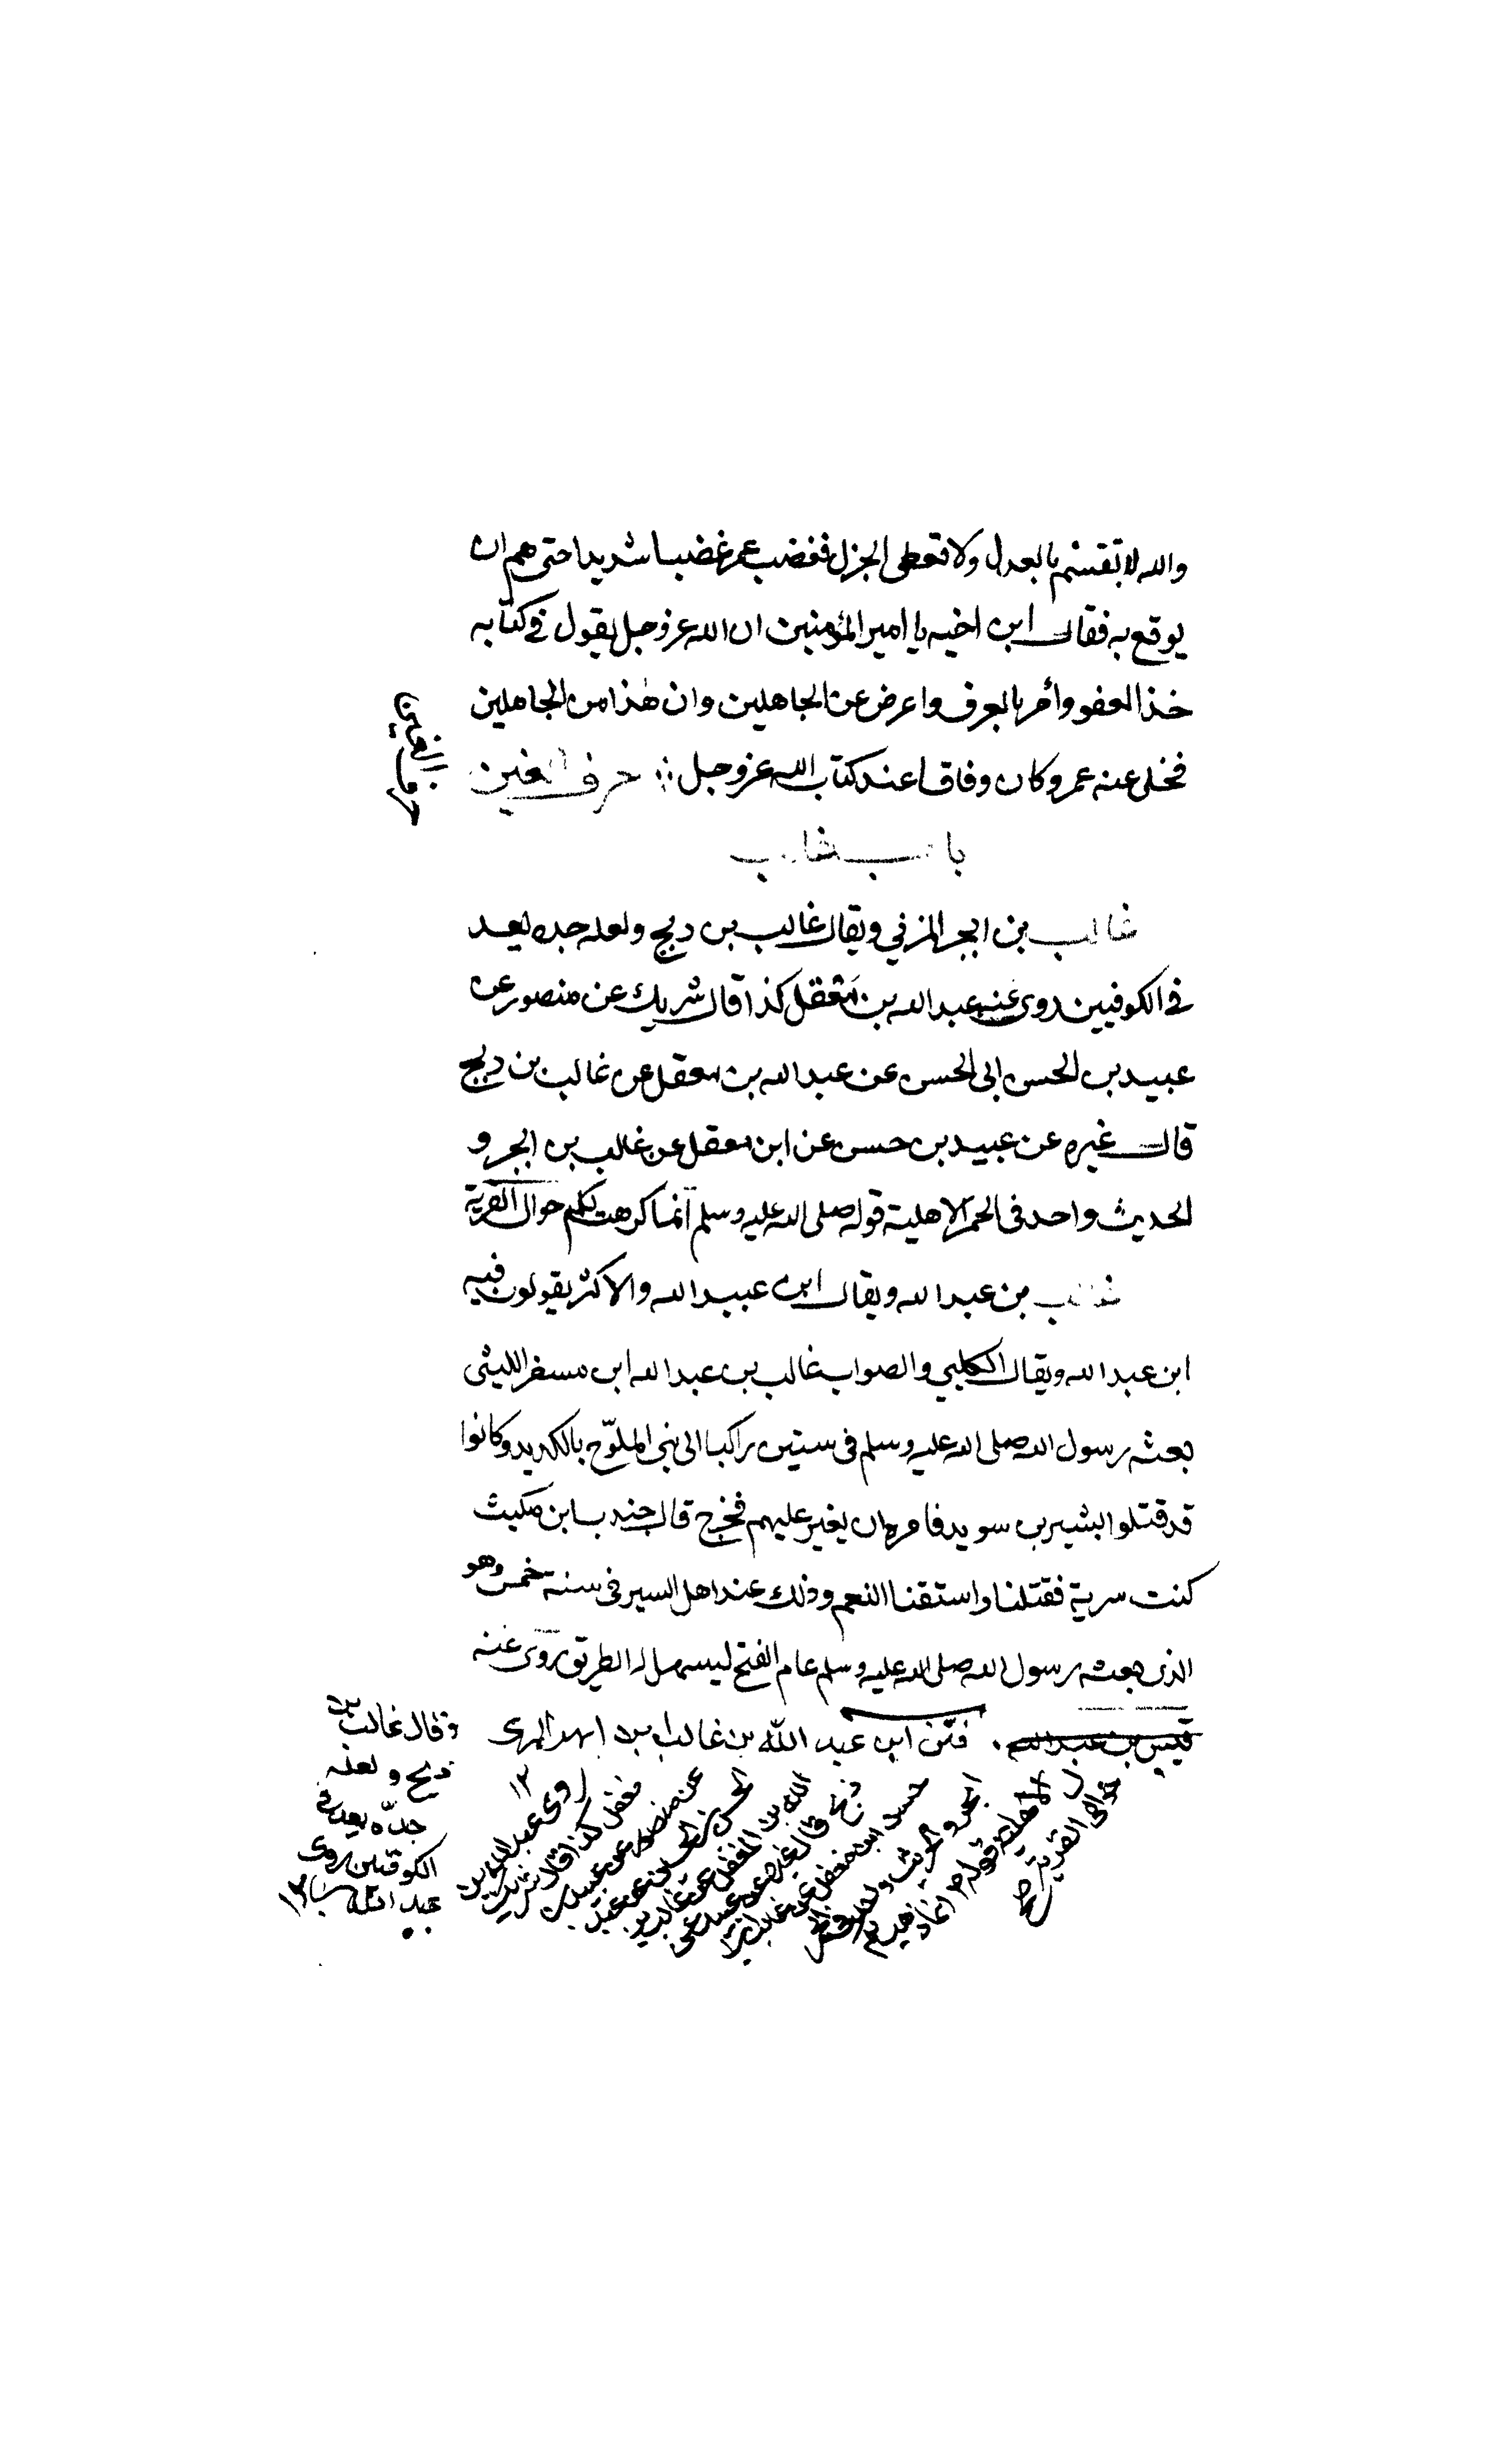 والله لا تقسم بالعدل ولا تعطى الجزل فغضب عمر غضبا شديدا حتى هم ان
يوقع به فقال ابن اخيه يا امير المؤمنين ان الله عز وجل يقول في كتابه
خذ العفو وأمر بالعرف واعرض عن الجاهلين وان هذا من الجاهلين
فخلى عنه عمر وكان وقافا عند كتاب الله عز وجل حرف الغين
باب غالب
غالب بن ابجر المزني ويقال غالب بن ديج ولعله جده يعد
في الكوفيين روى عنه عبد الله بن معقل كذا قال شريك عن منصور عن
عبيد بن الحسن ابى الحسن عن عبد الله بن معقل عن غالب بن ديج
قال غيره عن عبيد بن حسن عن ابن معقل عن غالب بن ابجر و
الحديث واحد فى الحمر الاهلية قوله صلى الله عليه وسلم انما كرهت لكم حوال القرية
غالب بن عبد الله ويقال ابن عبيد الله والاكثر يقولون فيه
ابن عبد الله ويقال الكلبي والصواب غالب بن عبد الله ابن مسفر الليثى
بعثه رسول الله صلى الله عليه وسلم فى ستين راكبا الى بنى الملوّح بالكديد وكانوا
قد قتلوا البشير بن سويد فامره ان يغير عليهم فخرج قال جندب ابن مكيث
كنت سرية فقتلنا واستقنا النعم وذلك عند اهل السير فى سنة خمس وهو
الذى بعثه رسول الله صلى الله عليه وسلم عام الفتح ليسهل له الطريق روى عنه
قيس بن عبد الله ابن عبد الله بن غالب بن
وقال غالب بن
ذيح ولعله
جدّه يعد فى
الكوفيين روى
عبد الله ١٢
روى عبد الله بن
مغفل كذا قال شريك
عن منصور عن عبيد بن
حسن ابن مغفل عن غالب
ابجر والحديث واحد
الاهلية قوله انما
حوالى القرية